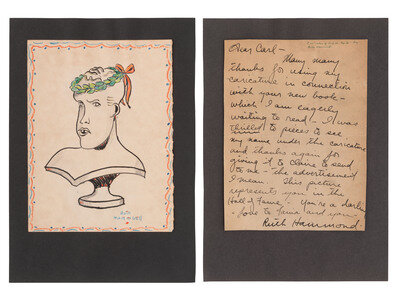 RUTH
HAMMOND
Dear Carl –
Many many
thanks for using my
caricature in connection
with your new book –
which I am eagerly
waiting to read – I was
thrilled to pieces to see
my name under the caricature
and thanks again for
giving it to Claire to send
to me – the advertisement
I mean. This picture
represents you in the
Hall of Fame – You're a darling
– love to Fania and you
Ruth Hammond